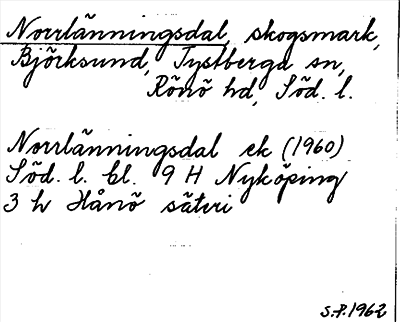 Norrlänningsdal, skogsmark,
Björksund, Tystberga sn,
Rönö hd, Söd. l.
Norrlänningsdal ek (1960)
Söd. l. bl. 9 H Nyköping
3 h Hånö säteri
S.P. 1962